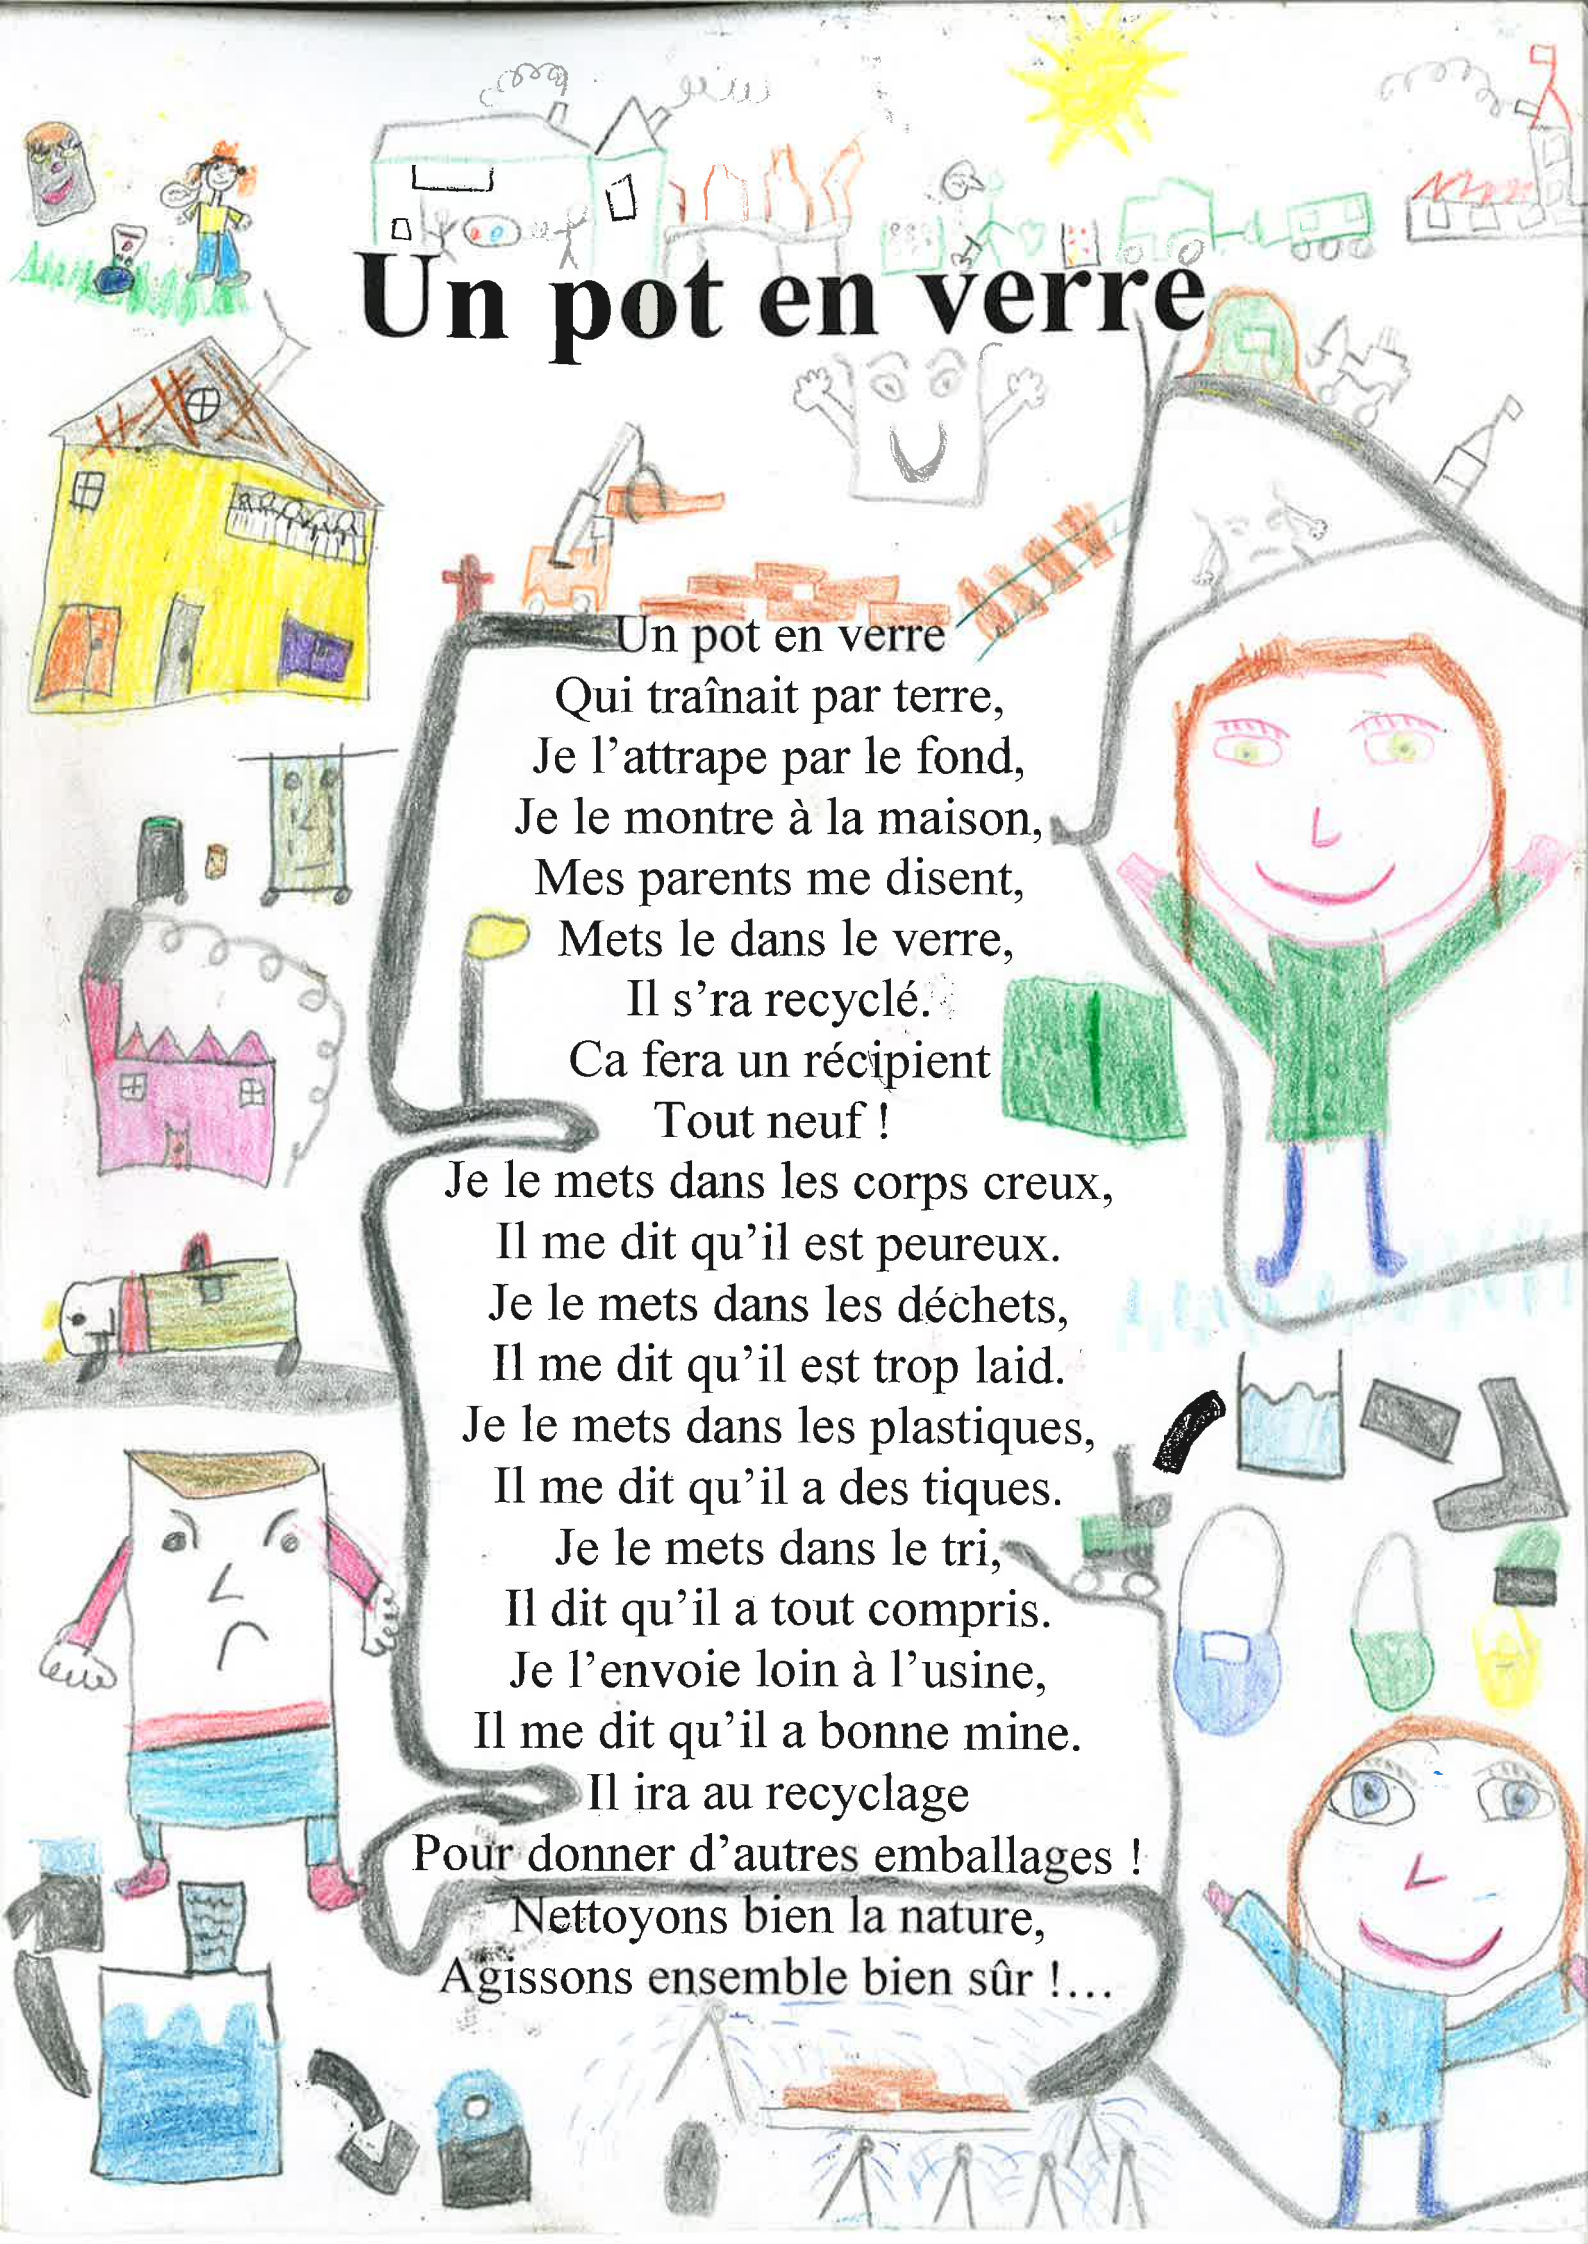 Un pot en verre
Un pot en verre
Qui traînait par terre,
Je l’attrape par le fond,
Je le montre à la maison,
Mes parents me disent,
Mets le dans le verre,
Il s’ra recyclé.
Ca fera un récipient
Tout neuf !
Je le mets dans les corps creux,
Il me dit qu’il est peureux.
Je le mets dans les déchets,
Il me dit qu’il est trop laid.
Je le mets dans les plastiques,
Il me dit qu’il a des tiques.
Je le mets dans le tri,
Il dit qu’il a tout compris.
Je l’envoie loin à l’usine,
Il me dit qu’il a bonne mine.
Il ira au recyclage
Pour donner d’autres emballages !
Nettoyons bien la nature,
Agissons ensemble bien sûr !…